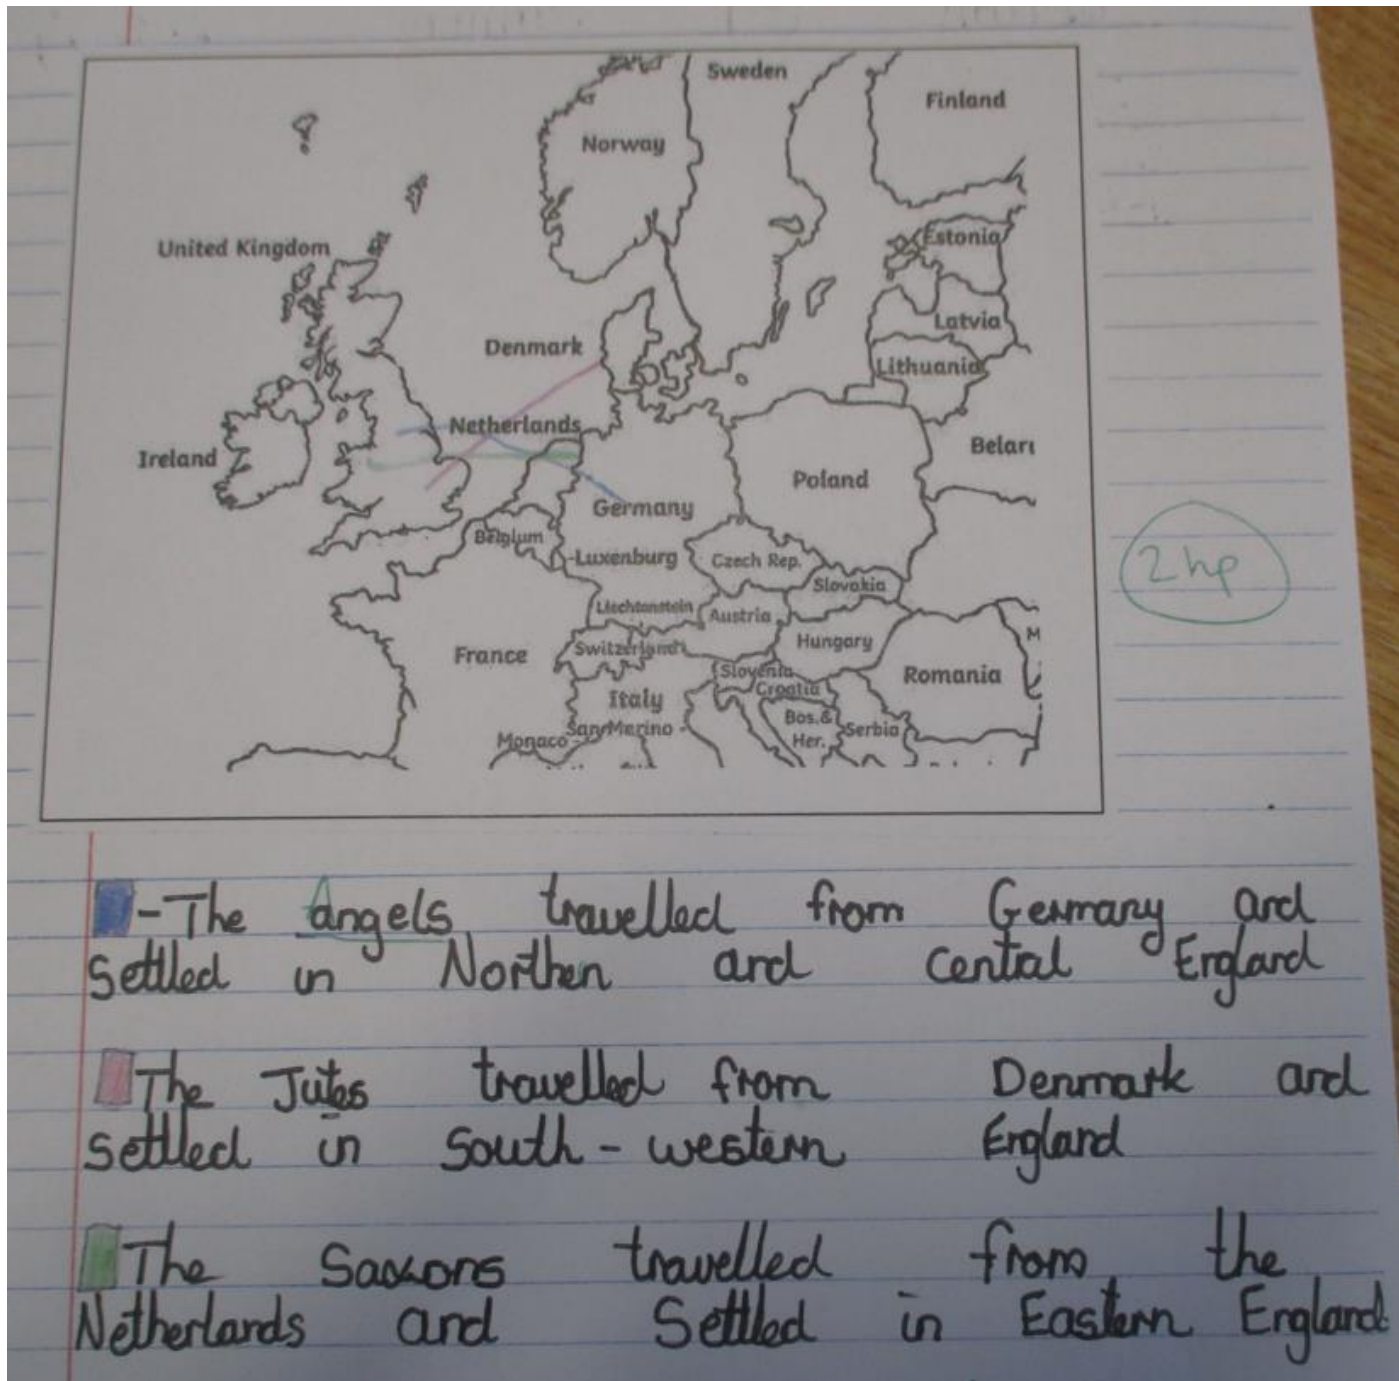 Sweden
Finland
Norway
United Kingdom
Estonia
Latvia
Denmark
Lithuania
Netherlands
Ireland
Belar
Poland
Germany
Belgium
Luxenburg
Czech Rep.
2hp
Slovakia
Liechtenstein
Austria
France
Switzerland
Hungary
M
Slovenia
Romania
Croatia
Italy
Bos.&
Her.
Serbia
San Marino
Monaco
-The Angels travelled from Germany and
settled in Northen and central England
The Jutes travelled from Denmark and
settled in South-western England
The Saxons travelled from the
Netherlands and Settled in Eastern England.